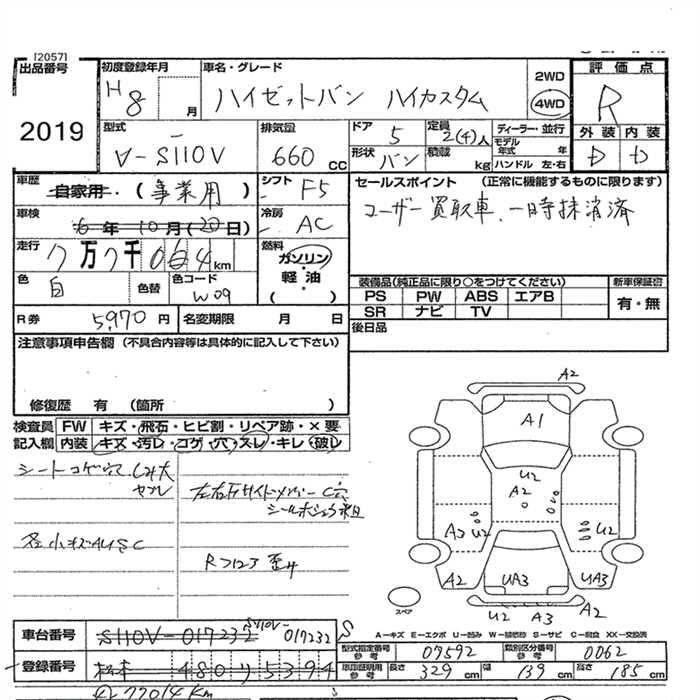 [2057]
出品番号
2019
初度登録年月
H 8 月
車名・グレード
ハイゼットバン ハイカスタム
2WD
4WD
評価点
R
型式
V-S110V
排気量
660 CC
ドア 5
定員 2(4)人
形状 バン
積載 kg
ディーラー・並行
モデル年式 年
ハンドル 左・右
外装 内装
D D
車歴
自家用・(事業用)
シフト F5
車検
6年10月(20日)
冷房 AC
走行
7万7千 km
燃料
ガソリン・軽油
( )
色
白
色替
色コード
W09
セールスポイント (正常に機能するものに限ります)
ユーザー買取車、一時抹消済
装備品(純正品に限り○をつけてください)
PS PW ABS エアB
SR ナビ TV
新車保証書
有・無
後日品
R券 5,970円
名変期限 月 日
注意事項申告欄(不具合内容等は具体的に記入して下さい)
修復歴 有 (箇所 )
検査員記入欄
FW キズ・飛石・ヒビ割・リペア跡・×要
内装 キズ・汚レ・コゲ・穴・スレ・キレ・破レ
シートコゲ穴 シミ大
ヤブレ
左右Fサイドメンバー C穴
シールホシュウ粗
各小キズAUSC
Rフロア 歪み
A2
A1
U2
A2
A3 U2 U2
A2 UA3 UA3
U2 A3 A2
スペア
A-キズ E-エクボ U-凹み W-補修跡 S-サビ C-腐食 XX-交換済
車台番号 S110V-017232 S110V-017232
登録番号 松本 480 り 5394
型式指定番号 07592
類別区分番号 0062
車検証明用参考 長さ 329 cm 幅参考 139 cm 高さ参考 185 cm
77014Km